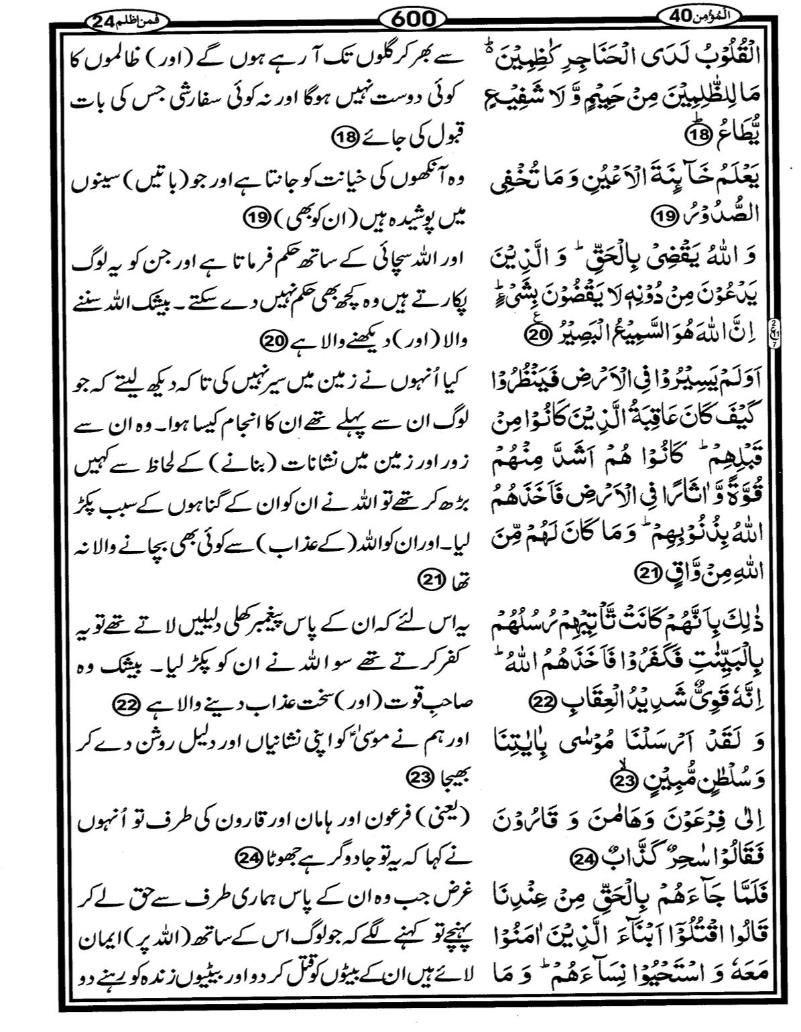 المؤمن 40
600
فمن اظلم 24
الْقُلُوْبُ لَدَى الْحَنَاجِرِ كٰظِمِيْنَ ۬ؕ
مَا لِلظّٰلِمِيْنَ مِنْ حَمِيْمٍ وَّ لَا شَفِيْعٍ
يُّطَاعُ ؕ 18
يَعْلَمُ خَآىِٕنَةَ الْاَعْيُنِ وَ مَا تُخْفِي
الصُّدُوْرُ 19
وَ اللّٰهُ يَقْضِيْ بِالْحَقِّ ؕ وَ الَّذِيْنَ
يَدْعُوْنَ مِنْ دُوْنِهٖ لَا يَقْضُوْنَ بِشَيْءٍ ؕ
اِنَّ اللّٰهَ هُوَ السَّمِيْعُ الْبَصِيْرُ ع 20
اَوَ لَمْ يَسِيْرُوْا فِي الْاَرْضِ فَيَنْظُرُوْا
كَيْفَ كَانَ عَاقِبَةُ الَّذِيْنَ كَانُوْا مِنْ
قَبْلِهِمْ ؕ كَانُوْا هُمْ اَشَدَّ مِنْهُمْ
قُوَّةً وَّ اٰثَارًا فِي الْاَرْضِ فَاَخَذَهُمُ
اللّٰهُ بِذُنُوْبِهِمْ ؕ وَ مَا كَانَ لَهُمْ مِّنَ
اللّٰهِ مِنْ وَّاقٍ 21
ذٰلِكَ بِاَنَّهُمْ كَانَتْ تَّاْتِيْهِمْ رُسُلُهُمْ
بِالْبَيِّنٰتِ فَكَفَرُوْا فَاَخَذَهُمُ اللّٰهُ ؕ
اِنَّهٗ قَوِيٌّ شَدِيْدُ الْعِقَابِ 22
وَ لَقَدْ اَرْسَلْنَا مُوْسٰى بِاٰيٰتِنَا
وَ سُلْطٰنٍ مُّبِيْنٍ ۙ 23
اِلٰى فِرْعَوْنَ وَ هَامٰنَ وَ قَارُوْنَ
فَقَالُوْا سٰحِرٌ كَذَّابٌ 24
فَلَمَّا جَآءَهُمْ بِالْحَقِّ مِنْ عِنْدِنَا
قَالُوا اقْتُلُوْۤا اَبْنَآءَ الَّذِيْنَ اٰمَنُوْا
مَعَهٗ وَ اسْتَحْيُوْا نِسَآءَهُمْ ؕ وَ مَا
سے بھر کر گلوں تک آ رہے ہوں گے (اور) ظالموں کا
کوئی دوست نہیں ہوگا اور نہ کوئی سفارشی جس کی بات
قبول کی جائے 18
وہ آنکھوں کی خیانت کو جانتا ہے اور جو (باتیں) سینوں
میں پوشیدہ ہیں (ان کو بھی) 19
اور اللہ سچائی کے ساتھ حکم فرماتا ہے اور جن کو یہ لوگ
پکارتے ہیں وہ کچھ بھی حکم نہیں دے سکتے۔ بیشک اللہ سننے
والا (اور) دیکھنے والا ہے 20
کیا اُنہوں نے زمین میں سیر نہیں کی تا کہ دیکھ لیتے کہ جو
لوگ ان سے پہلے تھے ان کا انجام کیسا ہوا۔ وہ ان سے
زور اور زمین میں نشانات (بنانے) کے لحاظ سے کہیں
بڑھ کر تھے تو اللہ نے ان کو ان کے گناہوں کے سبب پکڑ
لیا۔ اور ان کو اللہ (کے عذاب) سے کوئی بھی بچانے والا نہ
تھا 21
یہ اس لئے کہ ان کے پاس پیغمبر کھلی دلیلیں لاتے تھے تو یہ
کفر کرتے تھے سو اللہ نے ان کو پکڑ لیا۔ بیشک وہ
صاحبِ قوت (اور) سخت عذاب دینے والا ہے 22
اور ہم نے موسیٰؑ کو اپنی نشانیاں اور دلیل روشن دے کر
بھیجا 23
(یعنی) فرعون اور ہامان اور قارون کی طرف تو اُنہوں
نے کہا کہ یہ تو جادوگر ہے جھوٹا 24
غرض جب وہ ان کے پاس ہماری طرف سے حق لے کر
پہنچے تو کہنے لگے کہ جو لوگ اس کے ساتھ (اللہ پر) ایمان
لائے ہیں ان کے بیٹوں کو قتل کر دو اور بیٹیوں زندہ کو رہنے دو